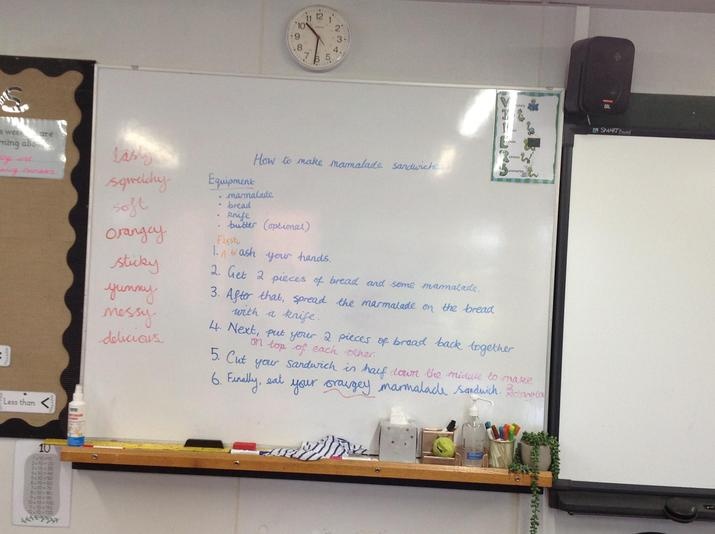 tasty
squidgy
soft
orangey
sticky
yummy
messy
delicious
How to make marmalade sandwiches
Equipment
• marmalade
• bread
• knife
• butter (optional)
First,
1. wash your hands.
2. Get 2 pieces of bread and some marmalade.
3. After that, spread the marmalade on the bread
with a knife.
4. Next, put your 2 pieces of bread back together
on top of each other.
5. Cut your sandwich in half down the middle to make
2
6. Finally, eat your orangey marmalade sandwich.
Less than <
10
SMART Board
12
1
2
3
4
5
8
9
10
11